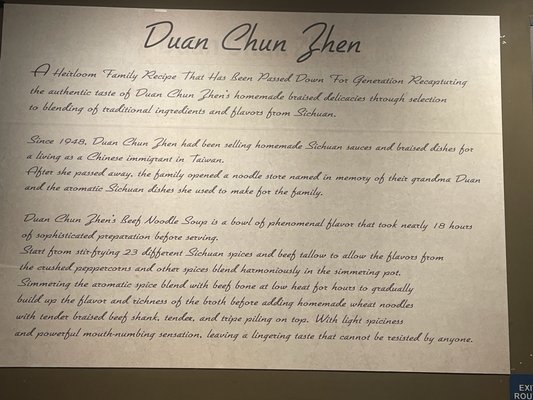 Duan Chun Zhen
A Heirloom Family Recipe That Has Been Passed Down For Generation Recapturing
the authentic taste of Duan Chun Zhen's homemade braised delicacies through selection
to blending of traditional ingredients and flavors from Sichuan.
Since 1948, Duan Chun Zhen had been selling homemade Sichuan sauces and braised dishes for
a living as a Chinese immigrant in Taiwan.
After she passed away, the family opened a noodle store named in memory of their grandma Duan
and the aromatic Sichuan dishes she used to make for the family.
Duan Chun Zhen's Beef Noodle Soup is a bowl of phenomenal flavor that took nearly 18 hours
of sophisticated preparation before serving.
Start from stir-frying 23 different Sichuan spices and beef tallow to allow the flavors from
the crushed peppercorns and other spices blend harmoniously in the simmering pot.
Simmering the aromatic spice blend with beef bone at low heat for hours to gradually
build up the flavor and richness of the broth before adding homemade wheat noodles
with tender braised beef shank, tender, and tripe piling on top. With light spiciness
and powerful mouth-numbing sensation, leaving a lingering taste that cannot be resisted by anyone.
EXI
ROU